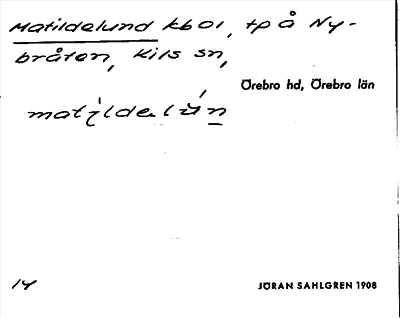 Matildelund kb01, tp å Ny-
bråten, Kils sn,
Örebro hd, Örebro län
matildelun
14
JÖRAN SAHLGREN 1908